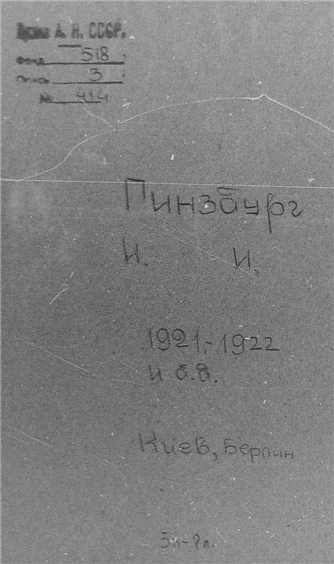 Архив А. Н. СССР.
Фонд 518
Опись 3
№ 414
Гинзбург
И. И.
1921-1922
и б.д.
Киев, Берлин